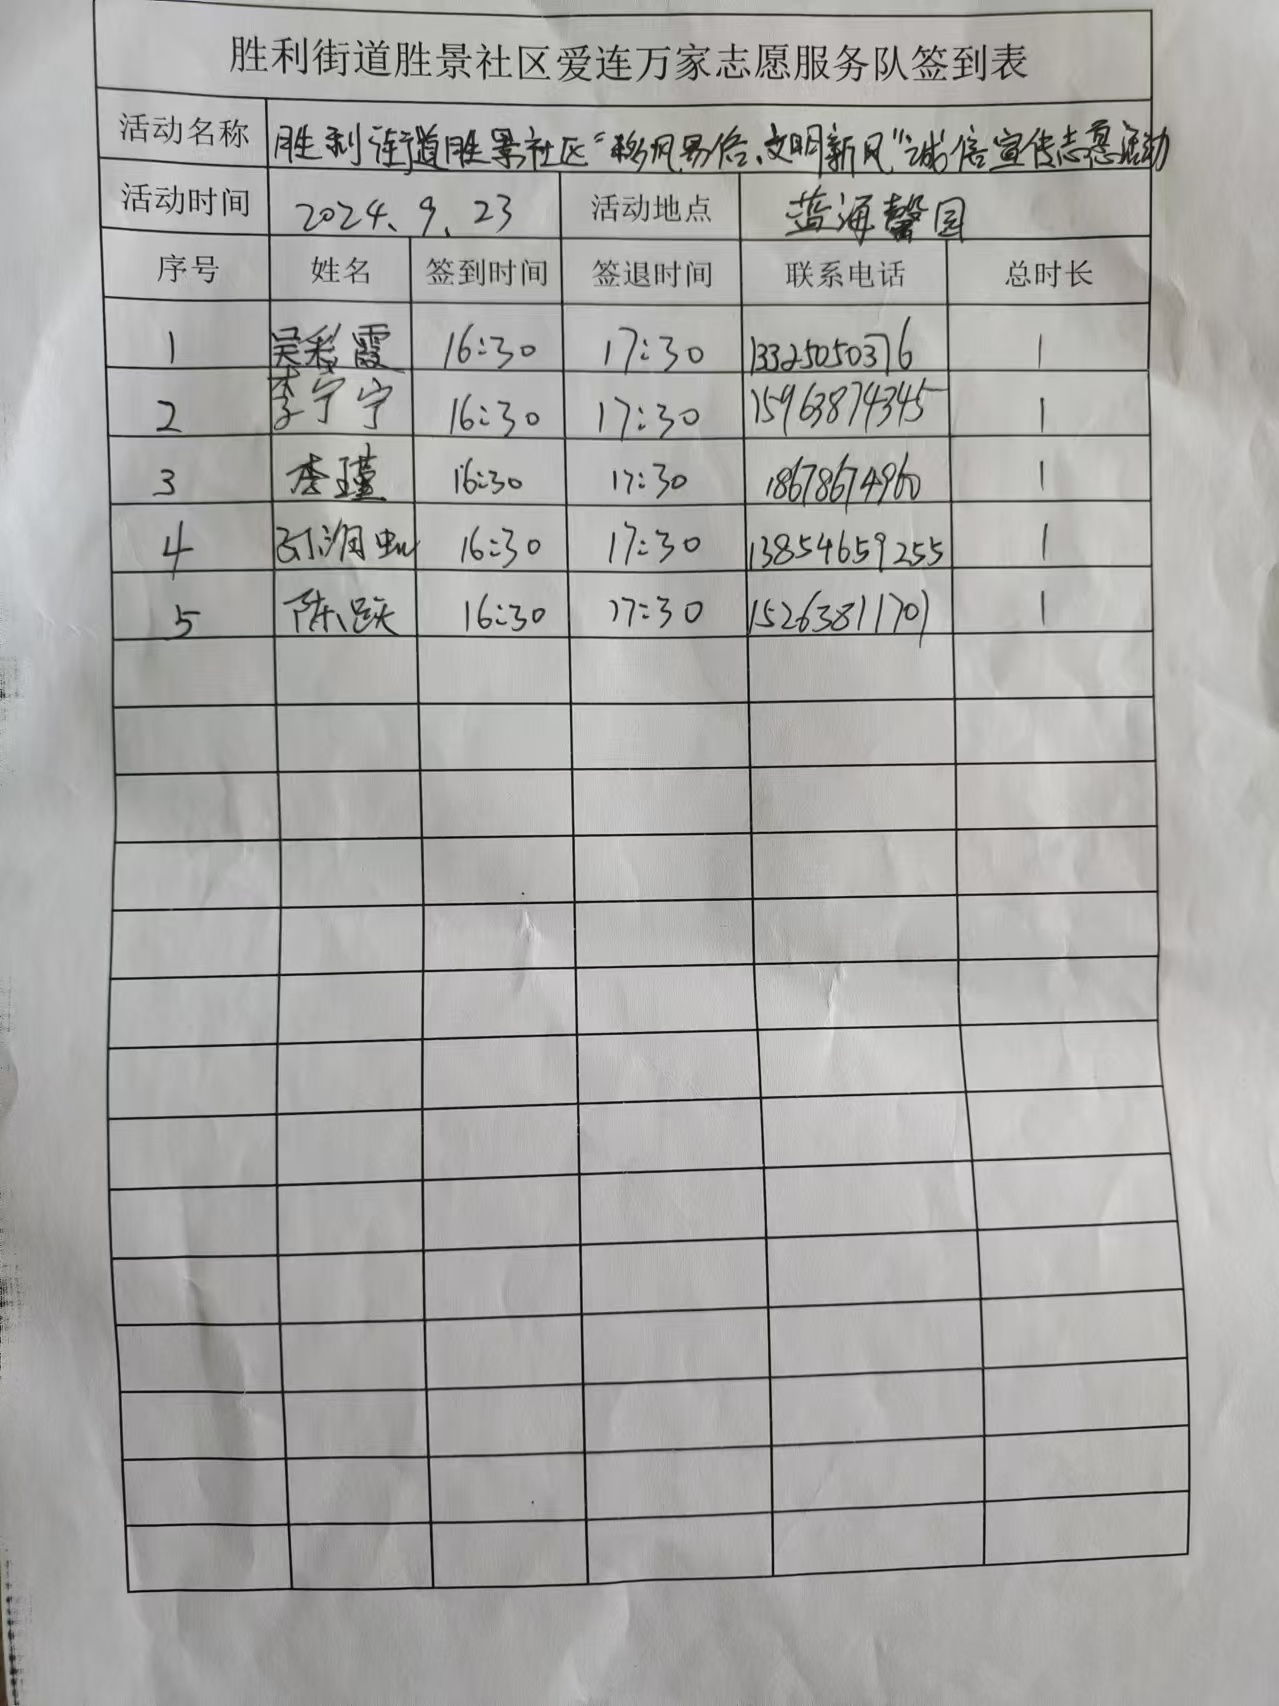 胜利街道胜景社区爱连万家志愿服务队签到表
活动名称 胜利街道胜景社区“移风易俗、文明新风”诚信宣传志愿活动
活动时间 2024、9、23 活动地点 蓝海馨园
序号 姓名 签到时间 签退时间 联系电话 总时长
1 吴彩霞 16:30 17:30 13325050376 1
2 李宁宁 16:30 17:30 15963874345 1
3 李瑾 16:30 17:30 18678674960 1
4 16:30 17:30 13854659255 1
5 陈跃 16:30 17:30 15263811701 1